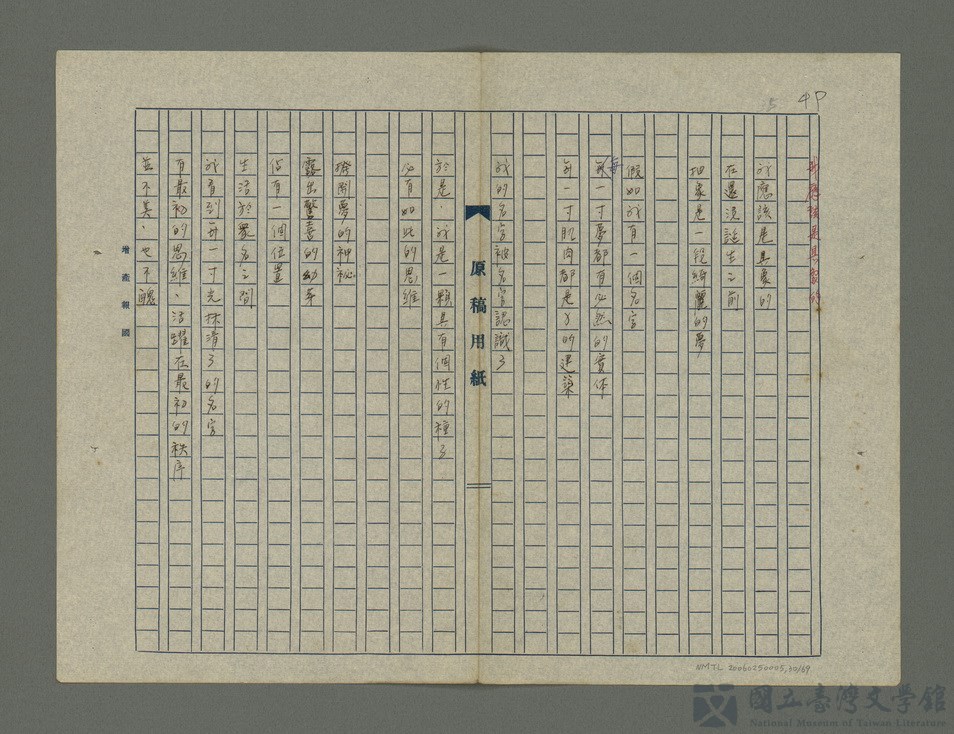 4P
5
我應該是具象的
我應該是具象的
在還沒誕生之前
抽象是一段綺麗的夢
假如我有一個名字
每一寸夢都有必然的實体
每一寸肌肉都是了的渲染
我的名字被名字認識了
原稿用紙
於是，我是一顆具有個性的種子
必有如此的思維
撥開夢的神祕
露出驚喜的幼芽
佔有一個位置
生活於眾名之間
我看到每一寸光抹清了的名字
有最初的思維，活躍在最初的秩序
並不美，也不醜
增產報國
NMTL 20060250005,30/69
國立臺灣文學館
National Museum of Taiwan Literature